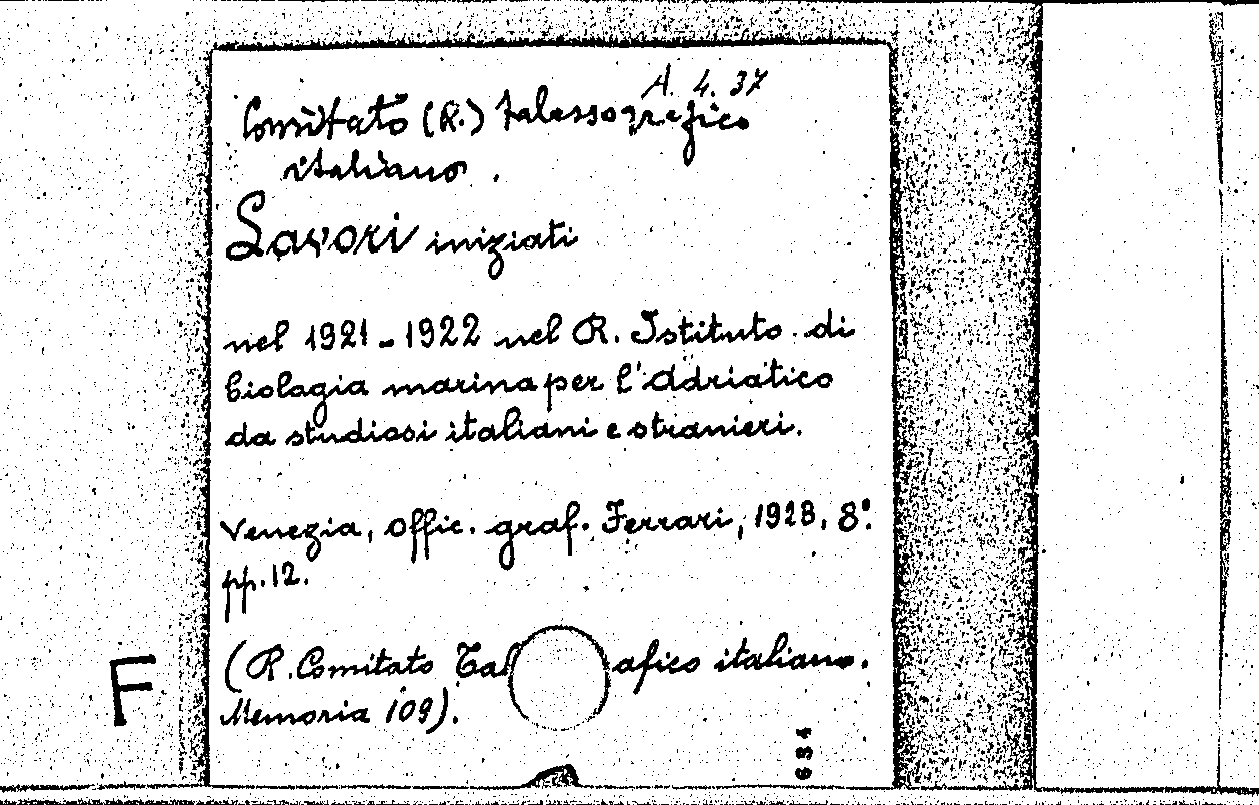 A. 4. 37
Comitato (R.) talassografico
italiano.
Lavori iniziati
nel 1921-1922 nel R. Istituto di
biologia marina per l'Adriatico
da studiosi italiani e stranieri.
Venezia, offic. graf. Ferrari, 1923, 8°.
pp. 12.
(R. Comitato Tal afico italiano.
Memoria 109).
F
634